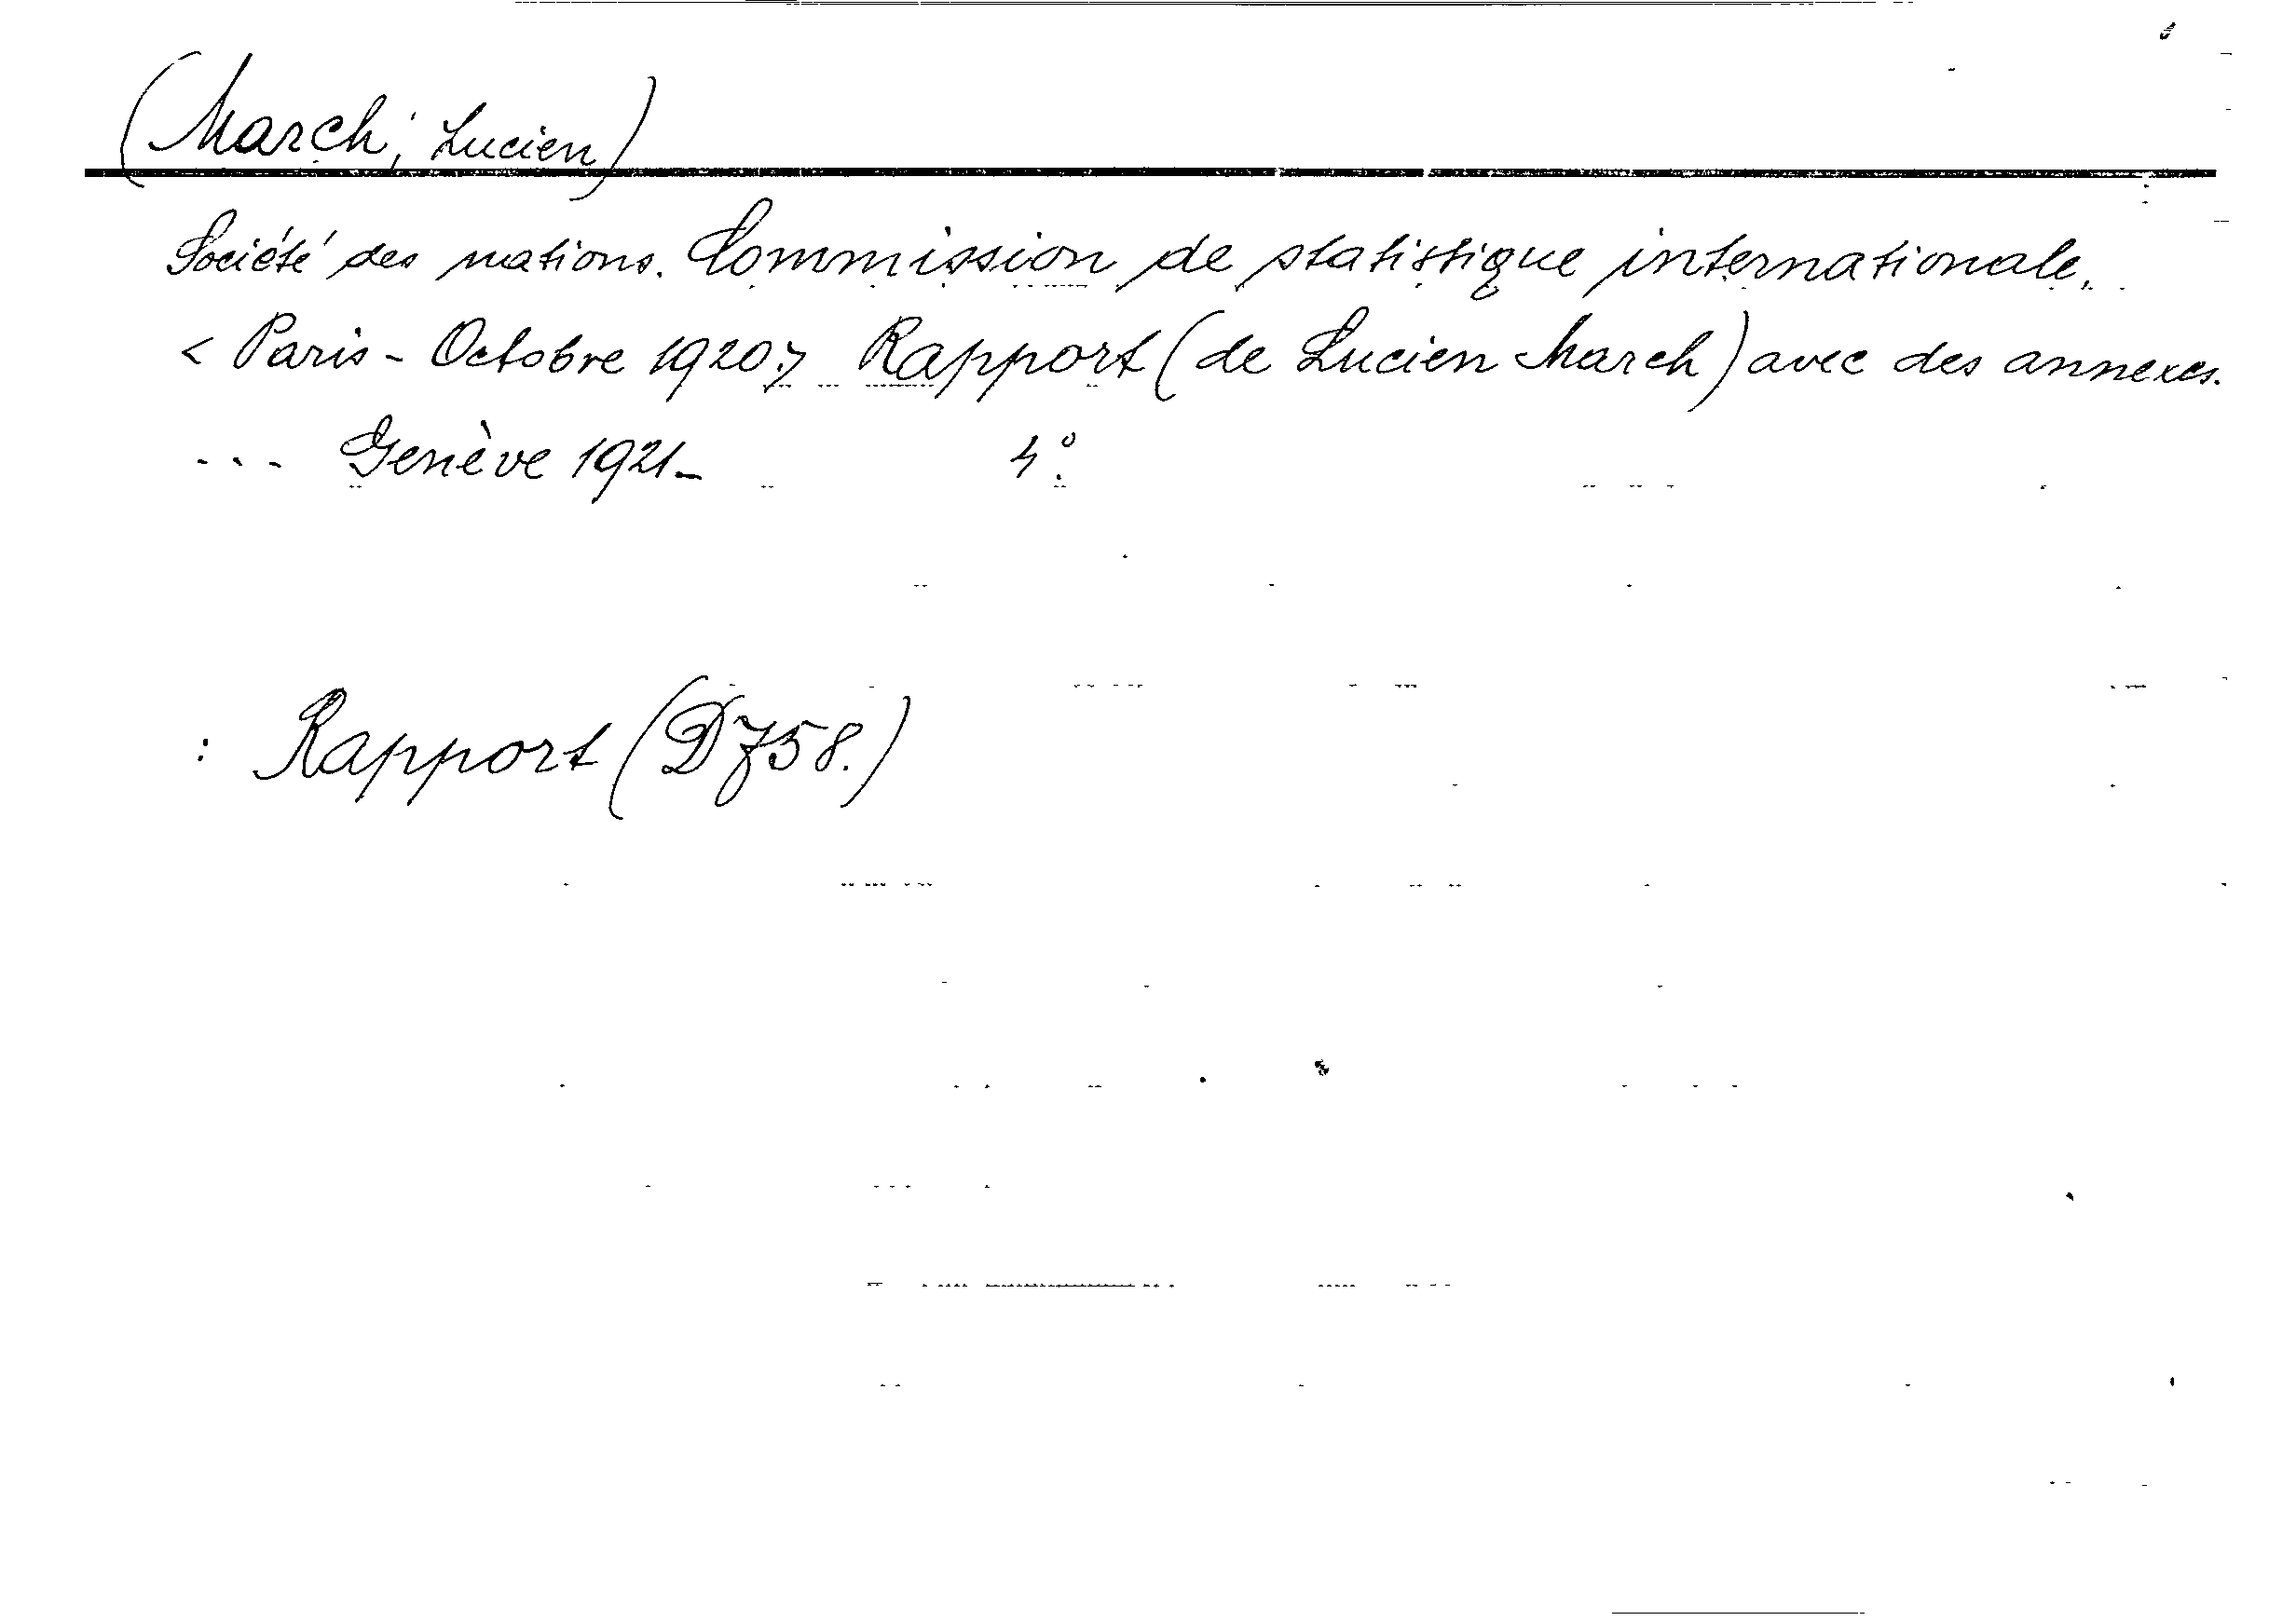 (March, Lucien)
Société des nations. Commission de statistique internationale.
< Paris - Octobre 1920.> Rapport (de Lucien March) avec des annexes.
... Genève 1921- 4°.
: Rapport (D758.)